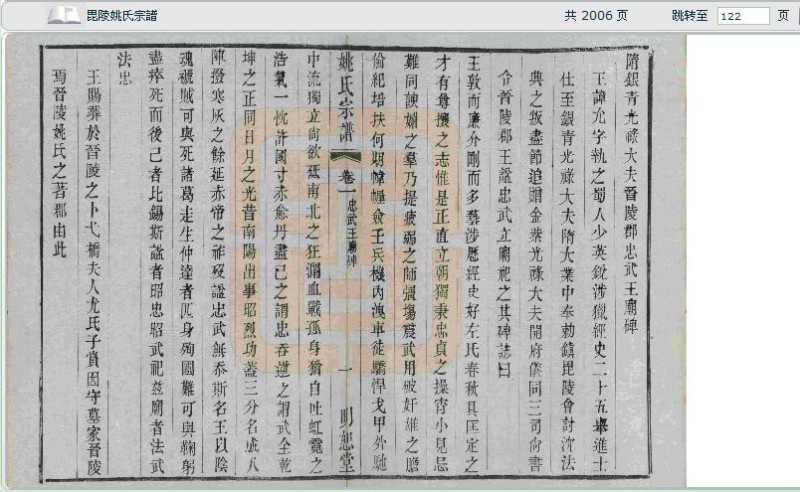 毘陵姚氏宗譜
共 2006 页
跳转至 122 页
隋銀青光祿大夫晉陵郡忠武王廟碑
王諱允字執之蜀人少英銳涉獵經史二十五舉進士
仕至銀青光祿大夫隋大業中奉勅鎮毘陵會討沈法
興之叛盡節追贈金紫光祿大夫開府儀同三司尚書
令晉陵郡王諡忠武立廟祀之其碑誌曰
王敦而廉介剛而多藝涉歷經史好左氏春秋具匡定之
才有尊攘之志惟是正直立朝獨秉忠貞之操宵小見忌
難同諫媚之羣乃提疲弱之師張場震武用破奸雄之膽
偷紀培扶何期幃幄僉壬兵機內洩車徒驕悍戈甲外馳
姚氏宗譜 卷一 忠武王廟碑 一 明恕堂
中流獨立尚欲砥南北之狂瀾血戰孤身猶自吐虹霓之
浩氣一忱許國寸赤愈丹盡己之謂忠吞逆之謂武全乾
坤之正同日月之光昔南陽出事昭烈功蓋三分名成八
陣撥寒灰之餘延赤帝之祚歿諡忠武無忝斯名王以陰
魂禠賊可與死諸葛走生仲達者匹身殉國難可與鞠躬
盡瘁死而後已者比錫斯諡者昭忠昭武祀茲廟者法武
法忠
王賜葬於晉陵之卜弋橋夫人尤氏子貴因守墓家晉陵
焉晉陵姚氏之著郡由此